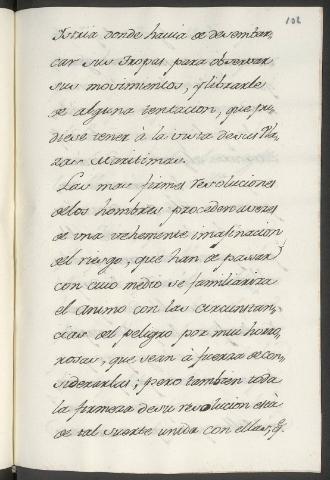 102
Istria donde havia de desembar,
car sus Tropas para observar
sus movimientos, y librarles
de alguna tentacion, que pu,
diese tener à la vista de sus Pla,
zas Maritimas.
Las mas firmes resoluciones
de los hombres proceden aveces
de una vehemente imaginacion
del riesgo, que han de pasar
con cuio medio se familiariza
el animo con las circunstan,
cias del peligro por mui horro,
rosas, que sean à fuerza de con,
siderarlas; pero tambien toda
la firmeza de su resolucion està
de tal suerte unida con ellas, q.